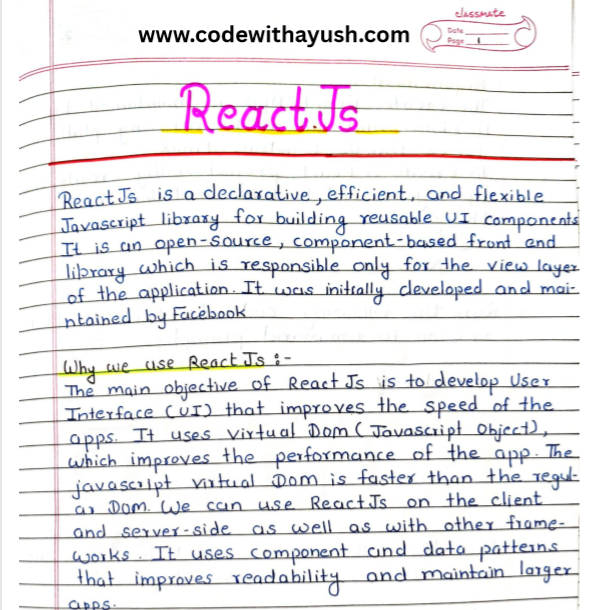 classmate
www.codewithayush.com
Date
Page 1
React.Js
ReactJs is a declarative, efficient, and flexible
Javascript library for building reusable UI components
It is an open-source, component-based front end
library which is responsible only for the view layer
of the application. It was initially developed and mai-
ntained by Facebook
Why we use ReactJs :-
The main objective of ReactJs is to develop User
Interface (UI) that improves the speed of the
apps. It uses virtual Dom (Javascript Object),
which improves the performance of the app. The
javascript virtual Dom is faster than the regul-
ar Dom. We can use ReactJs on the client
and server-side as well as with other frame-
works. It uses component and data patterns
that improves readability and maintain larger
apps.